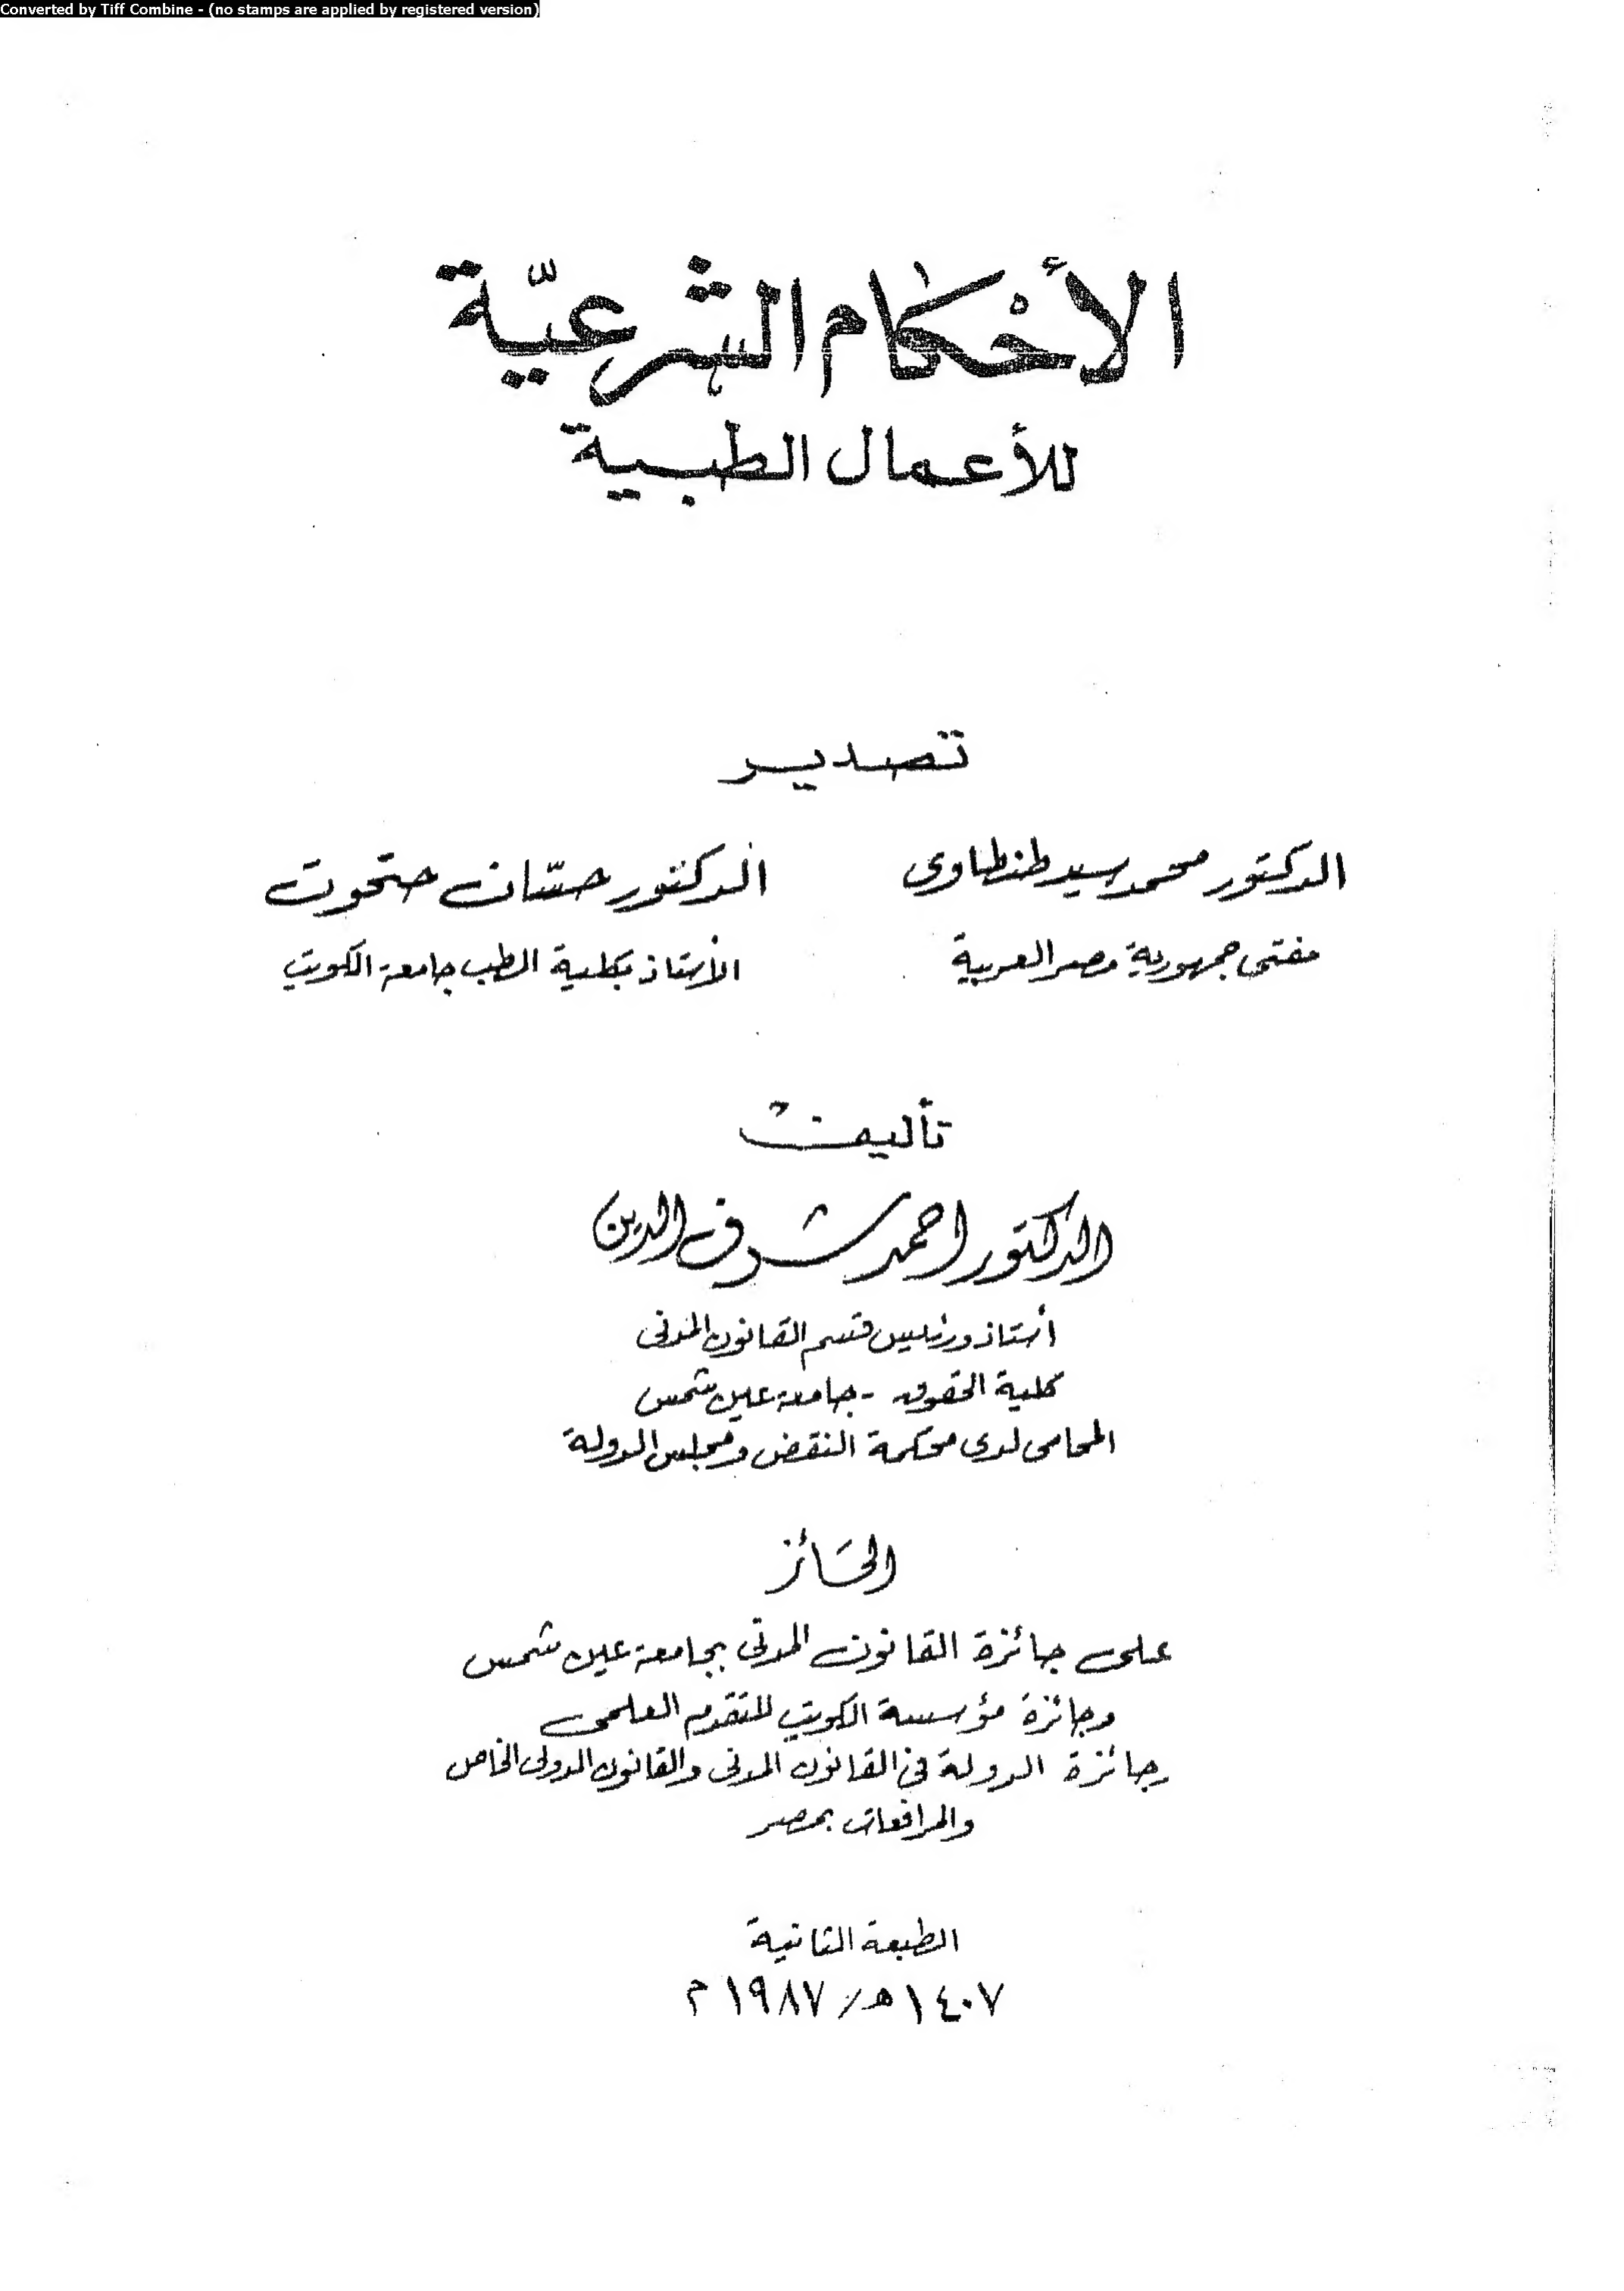 Converted by Tiff Combine - (no stamps are applied by registered version)
الأحْكام الشرعيّة
للأعمال الطبية
تصدير
الدكتور محمد سيد طنطاوى
الدكتور حسّان حتحوت
مفتى جمهورية مصر العربية
الأستاذ بكلية الطب جامعة الكويت
تأليف
الدكتور احمد شرف الدين
أستاذ ورئيس قسم القانون المدنى
كلية الحقوق - جامعة عين شمس
المحامى لدى محكمة النقض ومجلس الدولة
الحَائز
على جائزة القانون المدنى بجامعة عين شمس
وجائزة مؤسسة الكويت للتقدم العلمى
وجائزة الدولة فى القانون المدنى والقانون الدولى الخاص
والمرافعات بمصر
الطبعة الثانية
١٤٠٧ هـ / ١٩٨٧ م